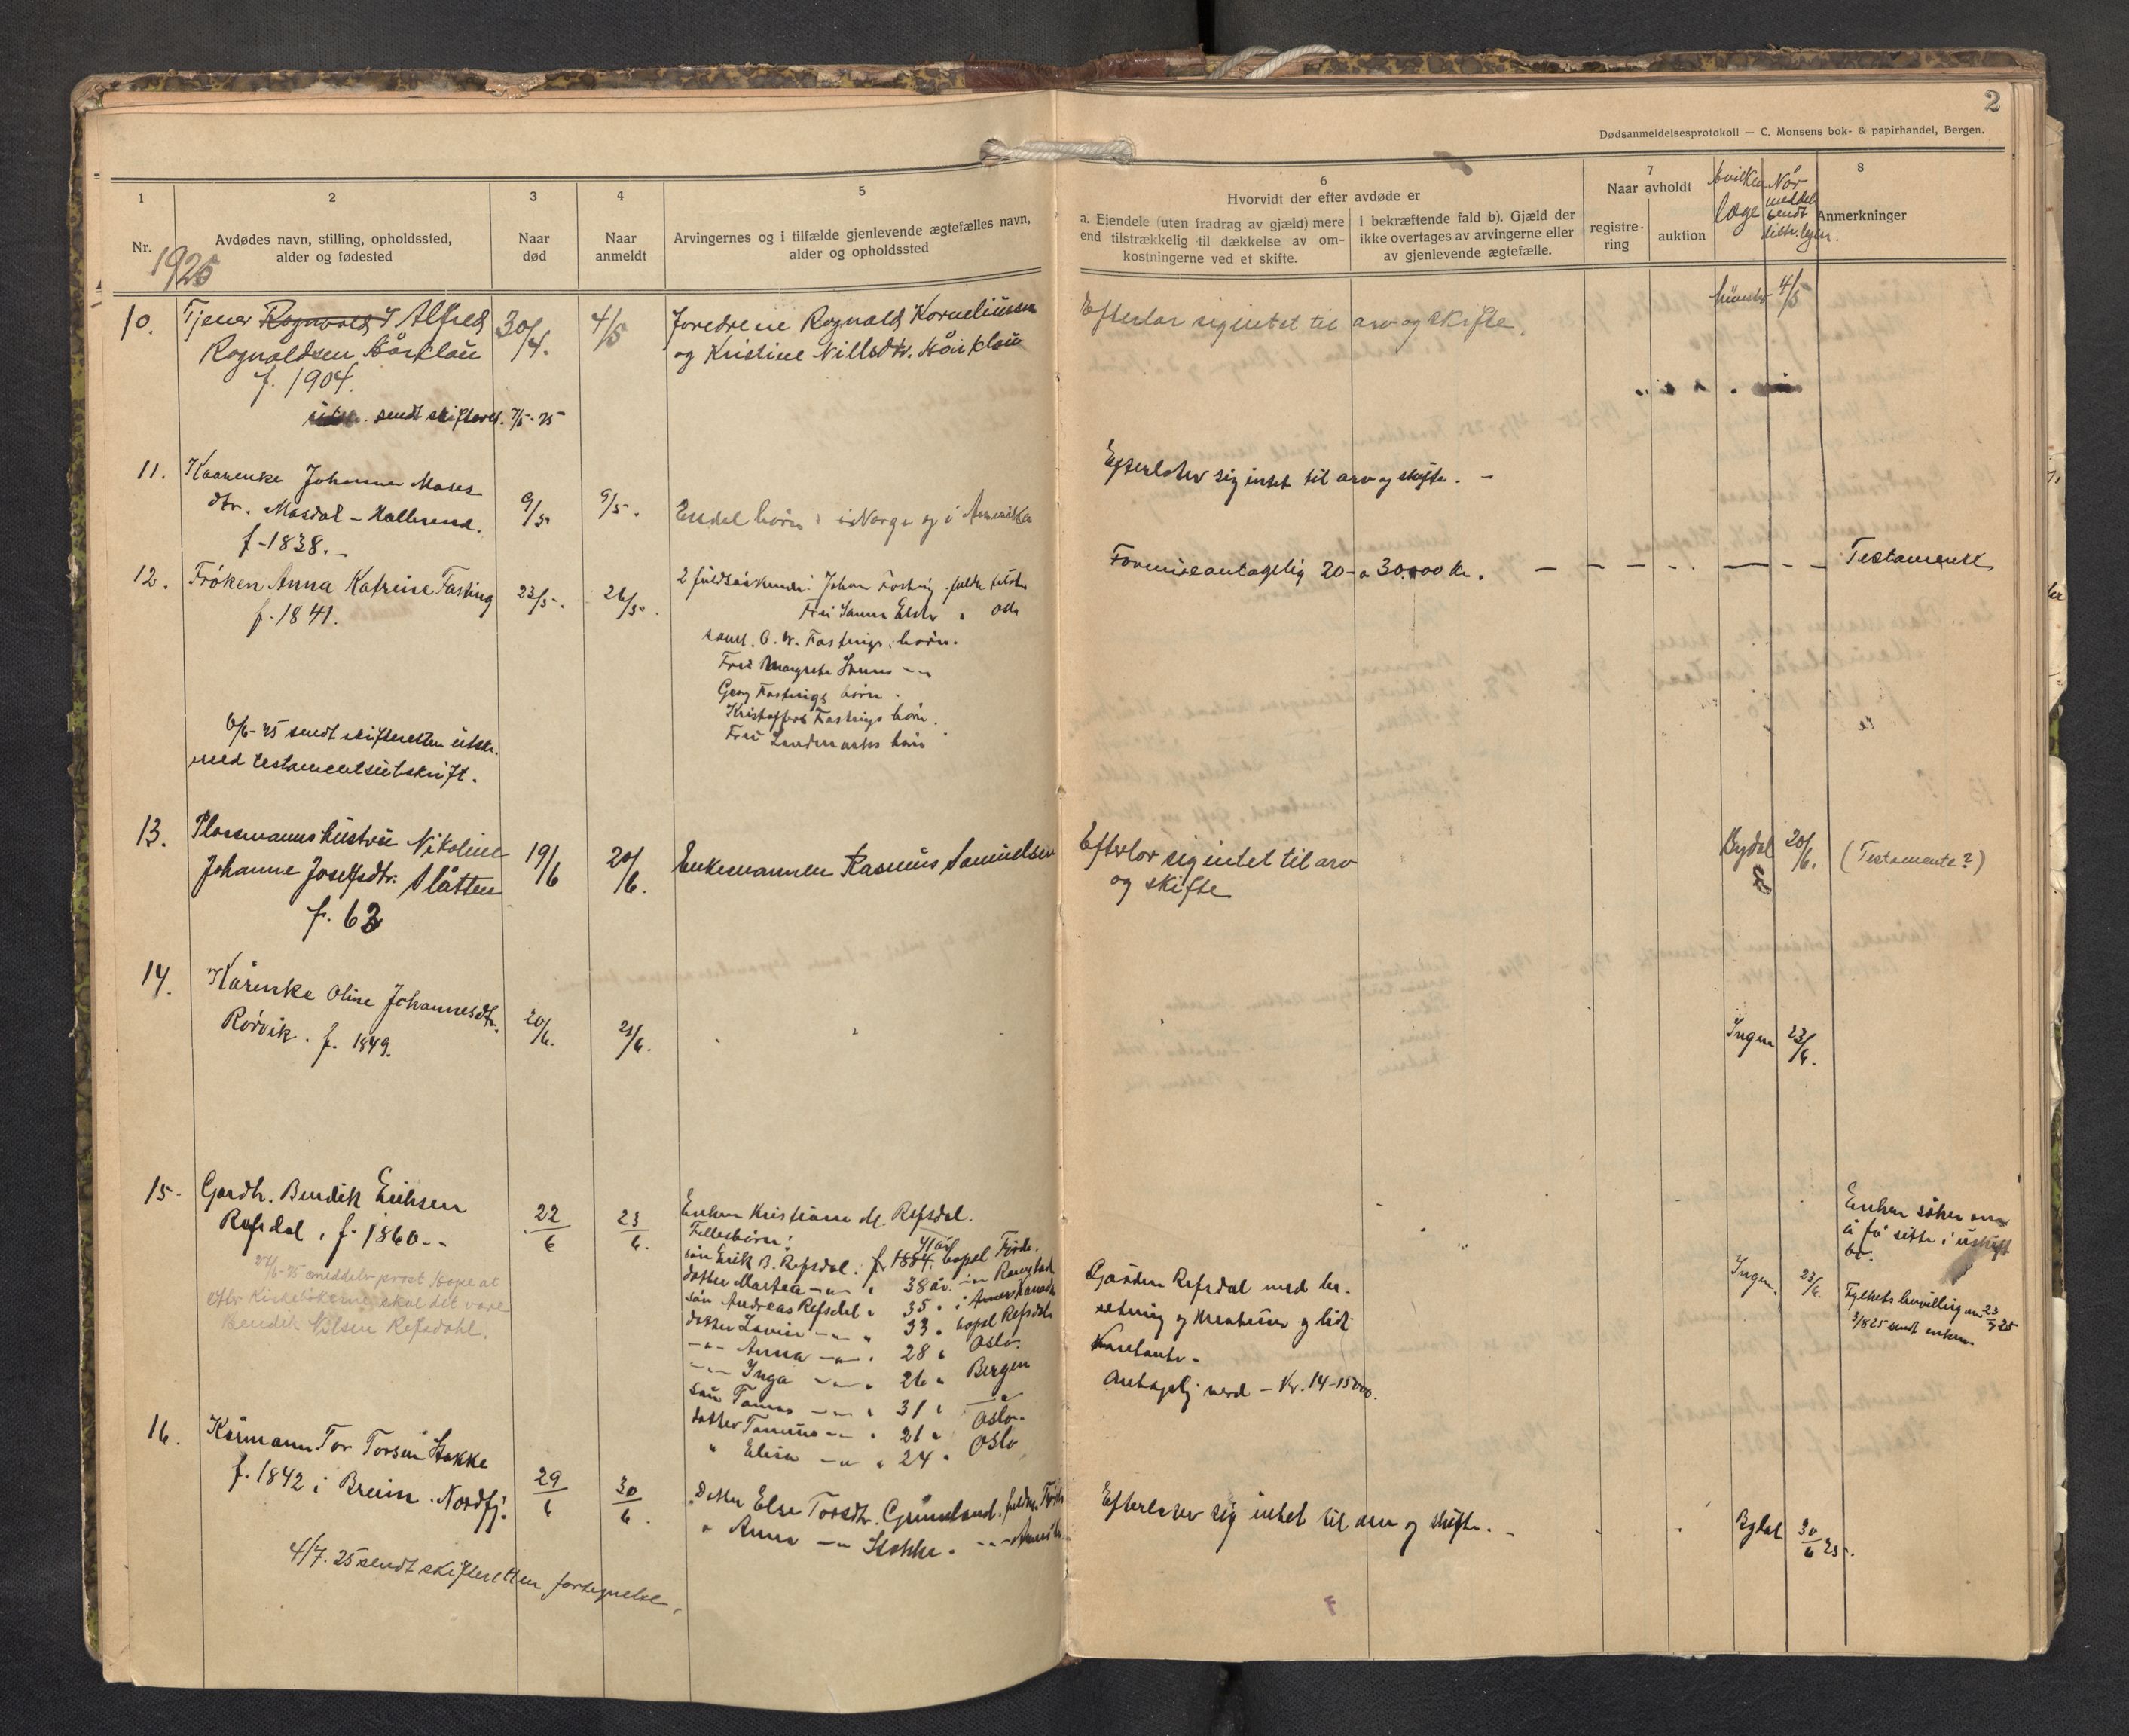 2
Dødsanmeldelsesprotokoll — C. Monsens bok- & papirhandel, Bergen.
1
2
3
4
5
6
7
8
Nr.
Avdødes navn, stilling, opholdssted,
alder og fødested
Naar
død
Naar
anmeldt
Arvingernes og i tilfælde gjenlevende ægtefælles navn,
alder og opholdssted
Hvorvidt der efter avdøde er
a. Eiendele (uten fradrag av gjæld) mere
end tilstrækkelig til dækkelse av om-
kostningerne ved et skifte.
I bekræftende fald b). Gjæld der
ikke overtages av arvingerne eller
av gjenlevende ægtefælle.
Naar avholdt
registre-
ring
auktion
Hvilken
læge
Når
meddel
sendt
Anmerkninger
1925
10.
Tjener Rognvald Alfred
Rognaldsen Hårklau
f. 1904.
sendt skifteret. 7/5-25
30/4.
4/5
Foreldrene Rognald Korneliussen
og Kristine Nillsdtr. Hårklau
Efterlot sig intet til arv og skifte.
4/5
11.
Kaarenke Johanne Moses
dtr. Masdal - Hallerund.
f-1838.-
9/5
9/5.
Endel børn i Norge og i Amerika
Efterlater sig intet til arv og skifte. -
12.
Frøken Anna Katrine Fasting
f. 1841.
23/5.
26/5.
2 fuldsøskende: Johan Fasting
Fru Sanna
saml. O. W. Fastings børn.
Fru Margrete
Georg Fastings børn.
Kristoffer Fastings børn.
Fru Landmarks børn
Formue antagelig 20-a 30.000 Kr.
Testamente
6/6-25 sendt skifteretten utskr.
med testamentsutskrift.
13.
Plassmannshustru Nikoline
Johanne Josefsdtr. Slåtten
f. 63
19/6
20/6.
Enkemannen Rasmus Samuelsen
Efterlot sig intet til arv
og skifte
Bydal
20/6.
(Testamente?)
14.
Kårenke Oline Johannesdtr.
Rørvik. f. 1849.
20/6.
21/6.
Ingen
23/6.
15.
Gardbr. Bendik Eriksen
Refsdal, f. 1860.-
22/6
23/6.
27/6-25 meddelv prost Hope at
efter Kirkebøkerne skal det være
Bendik Nilsen Refsdahl.
Enken Kristiane M. Refsdal.
Fellesbørn:
41 år
søn Erik B. Refsdal. f. 1884. bopel Førde.
datter Martea - " - 38 år.
søn Andreas Refsdal " 35 " i Amer Kanada
datter Lovise - " - " 33 " bopel Refsdal
- " - Anna - " - 28 " Oslo.
- " - Inga - " - 26 " Bergen
søn Tomas - " - 31 " - " -
datter Tomine - " - 21 " Oslo.
" Elisa - " - 24 " Oslo
Gården Refsdal med be-
setning og litt
Kontanter.
Antagelig verd - Kr. 14-15000.
Ingen.
23/6.
Enken søker om
å få sitte i uskift
bo.
Fylkets bevilling av 23/7 25
3/8 25 sendt enken.
16.
Kårmann Tor Torsen Stokke
f. 1842 i Breim. Nordfj.
29/6
30/6.
Datter Else Torsdtr. Grimeland.
" Anna - " - Stokke. - " - Amerika
Efterlater sig intet til arv og skifte. -
Bydal
30/6 25.
4/7. 25 sendt skifteretten fortegnelse.
F